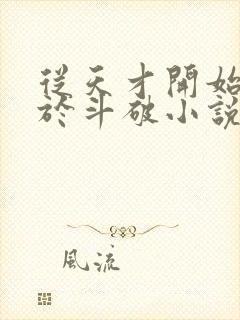 從天才開始
於斗破小說
風流